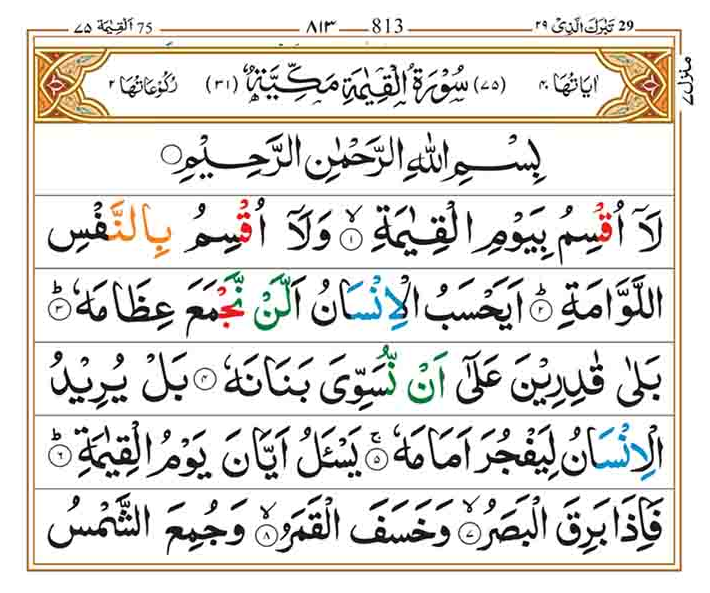 29 تَبٰرَكَ الَّذِیْ ٢٩ 813 ٨١٣ 75 اَلْقِيٰمَة ٧٥
منزل ٧
اٰيَاتُهَا ٤٠ (٧٥) سُوْرَةُ الْقِيٰمَةِ مَكِّيَّةٌ (٣١) رُكُوْعَاتُهَا ٢
بِسْمِ اللّٰهِ الرَّحْمٰنِ الرَّحِيْمِ
لَاۤ اُقْسِمُ بِيَوْمِ الْقِيٰمَةِ ۙ﴿١﴾ وَلَاۤ اُقْسِمُ بِالنَّفْسِ
اللَّوَّامَةِ ؕ﴿٢﴾ اَيَحْسَبُ الْاِنْسَانُ اَلَّنْ نَّجْمَعَ عِظَامَهٗ ؕ﴿٣﴾
بَلٰى قٰدِرِيْنَ عَلٰۤى اَنْ نُّسَوِّىَ بَنَانَهٗ ﴿٤﴾ بَلْ يُرِيْدُ
الْاِنْسَانُ لِيَفْجُرَ اَمَامَهٗ ۚ﴿٥﴾ يَسْـَٔلُ اَيَّانَ يَوْمُ الْقِيٰمَةِ ؕ﴿٦﴾
فَاِذَا بَرِقَ الْبَصَرُ ۙ﴿٧﴾ وَخَسَفَ الْقَمَرُ ۙ﴿٨﴾ وَجُمِعَ الشَّمْسُ